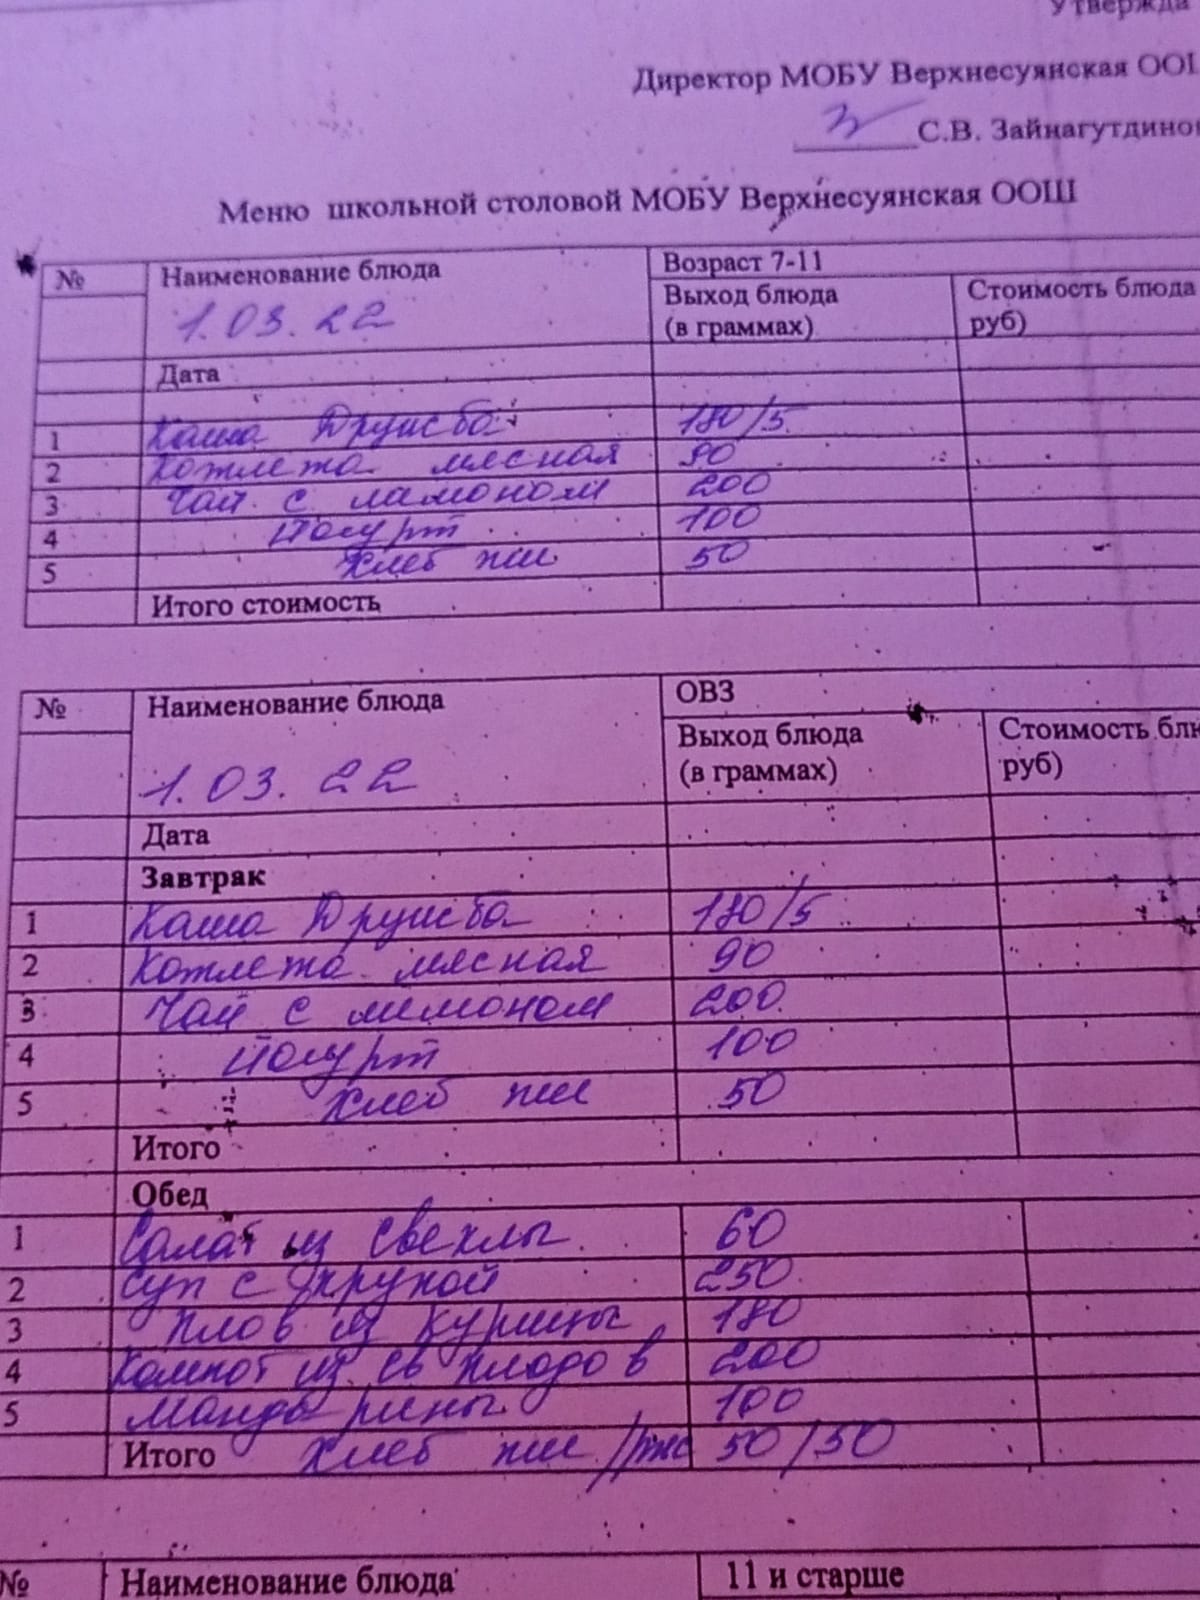 Утвержда
Директор МОБУ Верхнесуянская ООШ
С.В. Зайнагутдинов
Меню школьной столовой МОБУ Верхнесуянская ООШ
№ Наименование блюда Возраст 7-11
1.03.22 Выход блюда (в граммах) Стоимость блюда руб)
Дата
1 Каша Дружба 180/5
2 Котлета мясная 90
3 Чай с лимоном 200
4 Йогурт 100
5 Хлеб пш 50
Итого стоимость
№ Наименование блюда ОВЗ
1.03.22 Выход блюда (в граммах) Стоимость блю руб)
Дата
Завтрак
1 Каша Дружба 180/5
2 Котлета мясная 90
3 Чай с лимоном 200
4 Йогурт 100
5 Хлеб пш 50
Итого
Обед
1 Салат из свеклы 60
2 Суп с крупой 250
3 Плов из курицы 180
4 Компот из св плодов 200
5 Мандарины 100
Итого Хлеб пш/рж 50/50
№ Наименование блюда 11 и старше